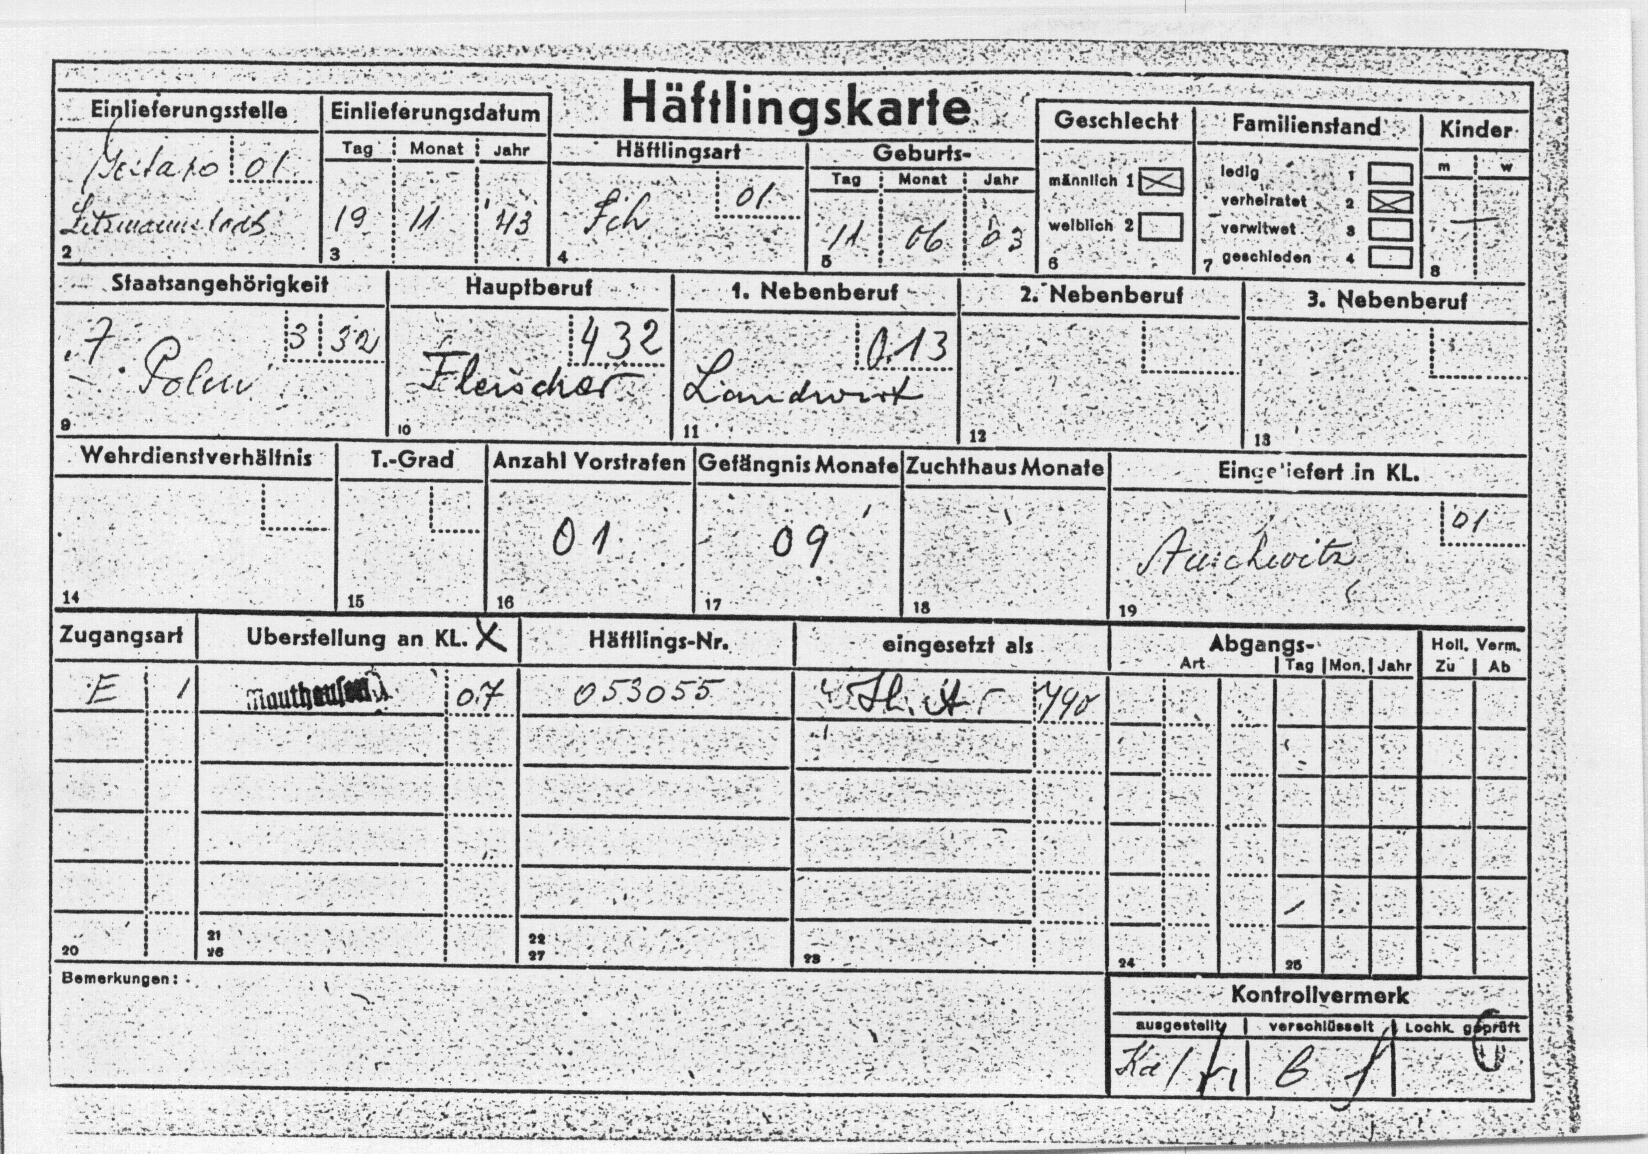 Häftlingskarte
Einlieferungsstelle
01
Litzmannstadt
2
Einlieferungsdatum
Tag Monat Jahr
19 11 43
3
Häftlingsart
Sch 01
4
Geburts-
Tag Monat Jahr
11 06 03
5
Geschlecht
männlich 1
weiblich 2
6
Familienstand
ledig 1
verheiratet 2
verwitwet 3
geschieden 4
7
Kinder
m w
8
Staatsangehörigkeit
3 32
Polen
9
Hauptberuf
432
Fleischer
10
1. Nebenberuf
013
Landwirt
11
2. Nebenberuf
12
3. Nebenberuf
13
Wehrdienstverhältnis
14
T.-Grad
15
Anzahl Vorstrafen
01
16
Gefängnis Monate
09
17
Zuchthaus Monate
18
Eingeliefert in KL.
01
Auschwitz
19
Zugangsart
E 1
20
Überstellung an KL. X
Mauthausen 07
21
26
Häftlings-Nr.
053055
22
27
eingesetzt als
23
Abgangs-
Art Tag Mon. Jahr
24 25
Holl. Verm.
Zu Ab
Bemerkungen:
Kontrollvermerk
ausgestellt verschlüsselt Lochk. geprüft